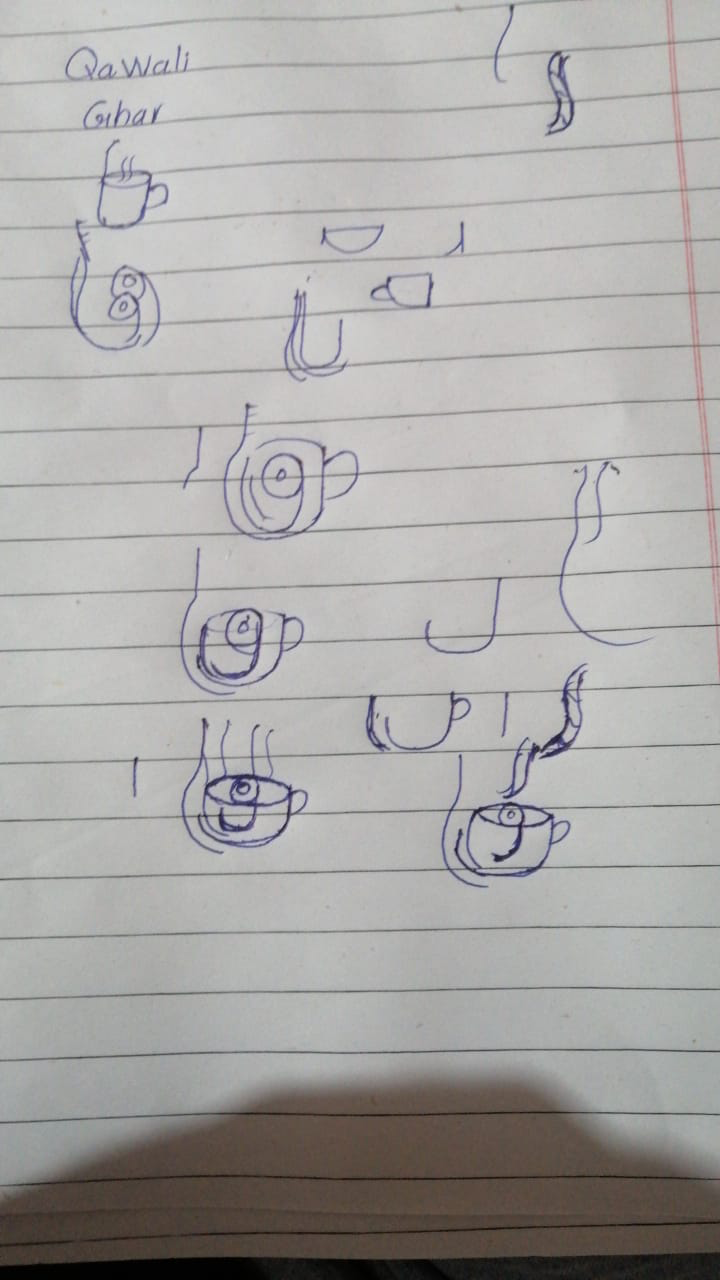 Qawali
Ghar